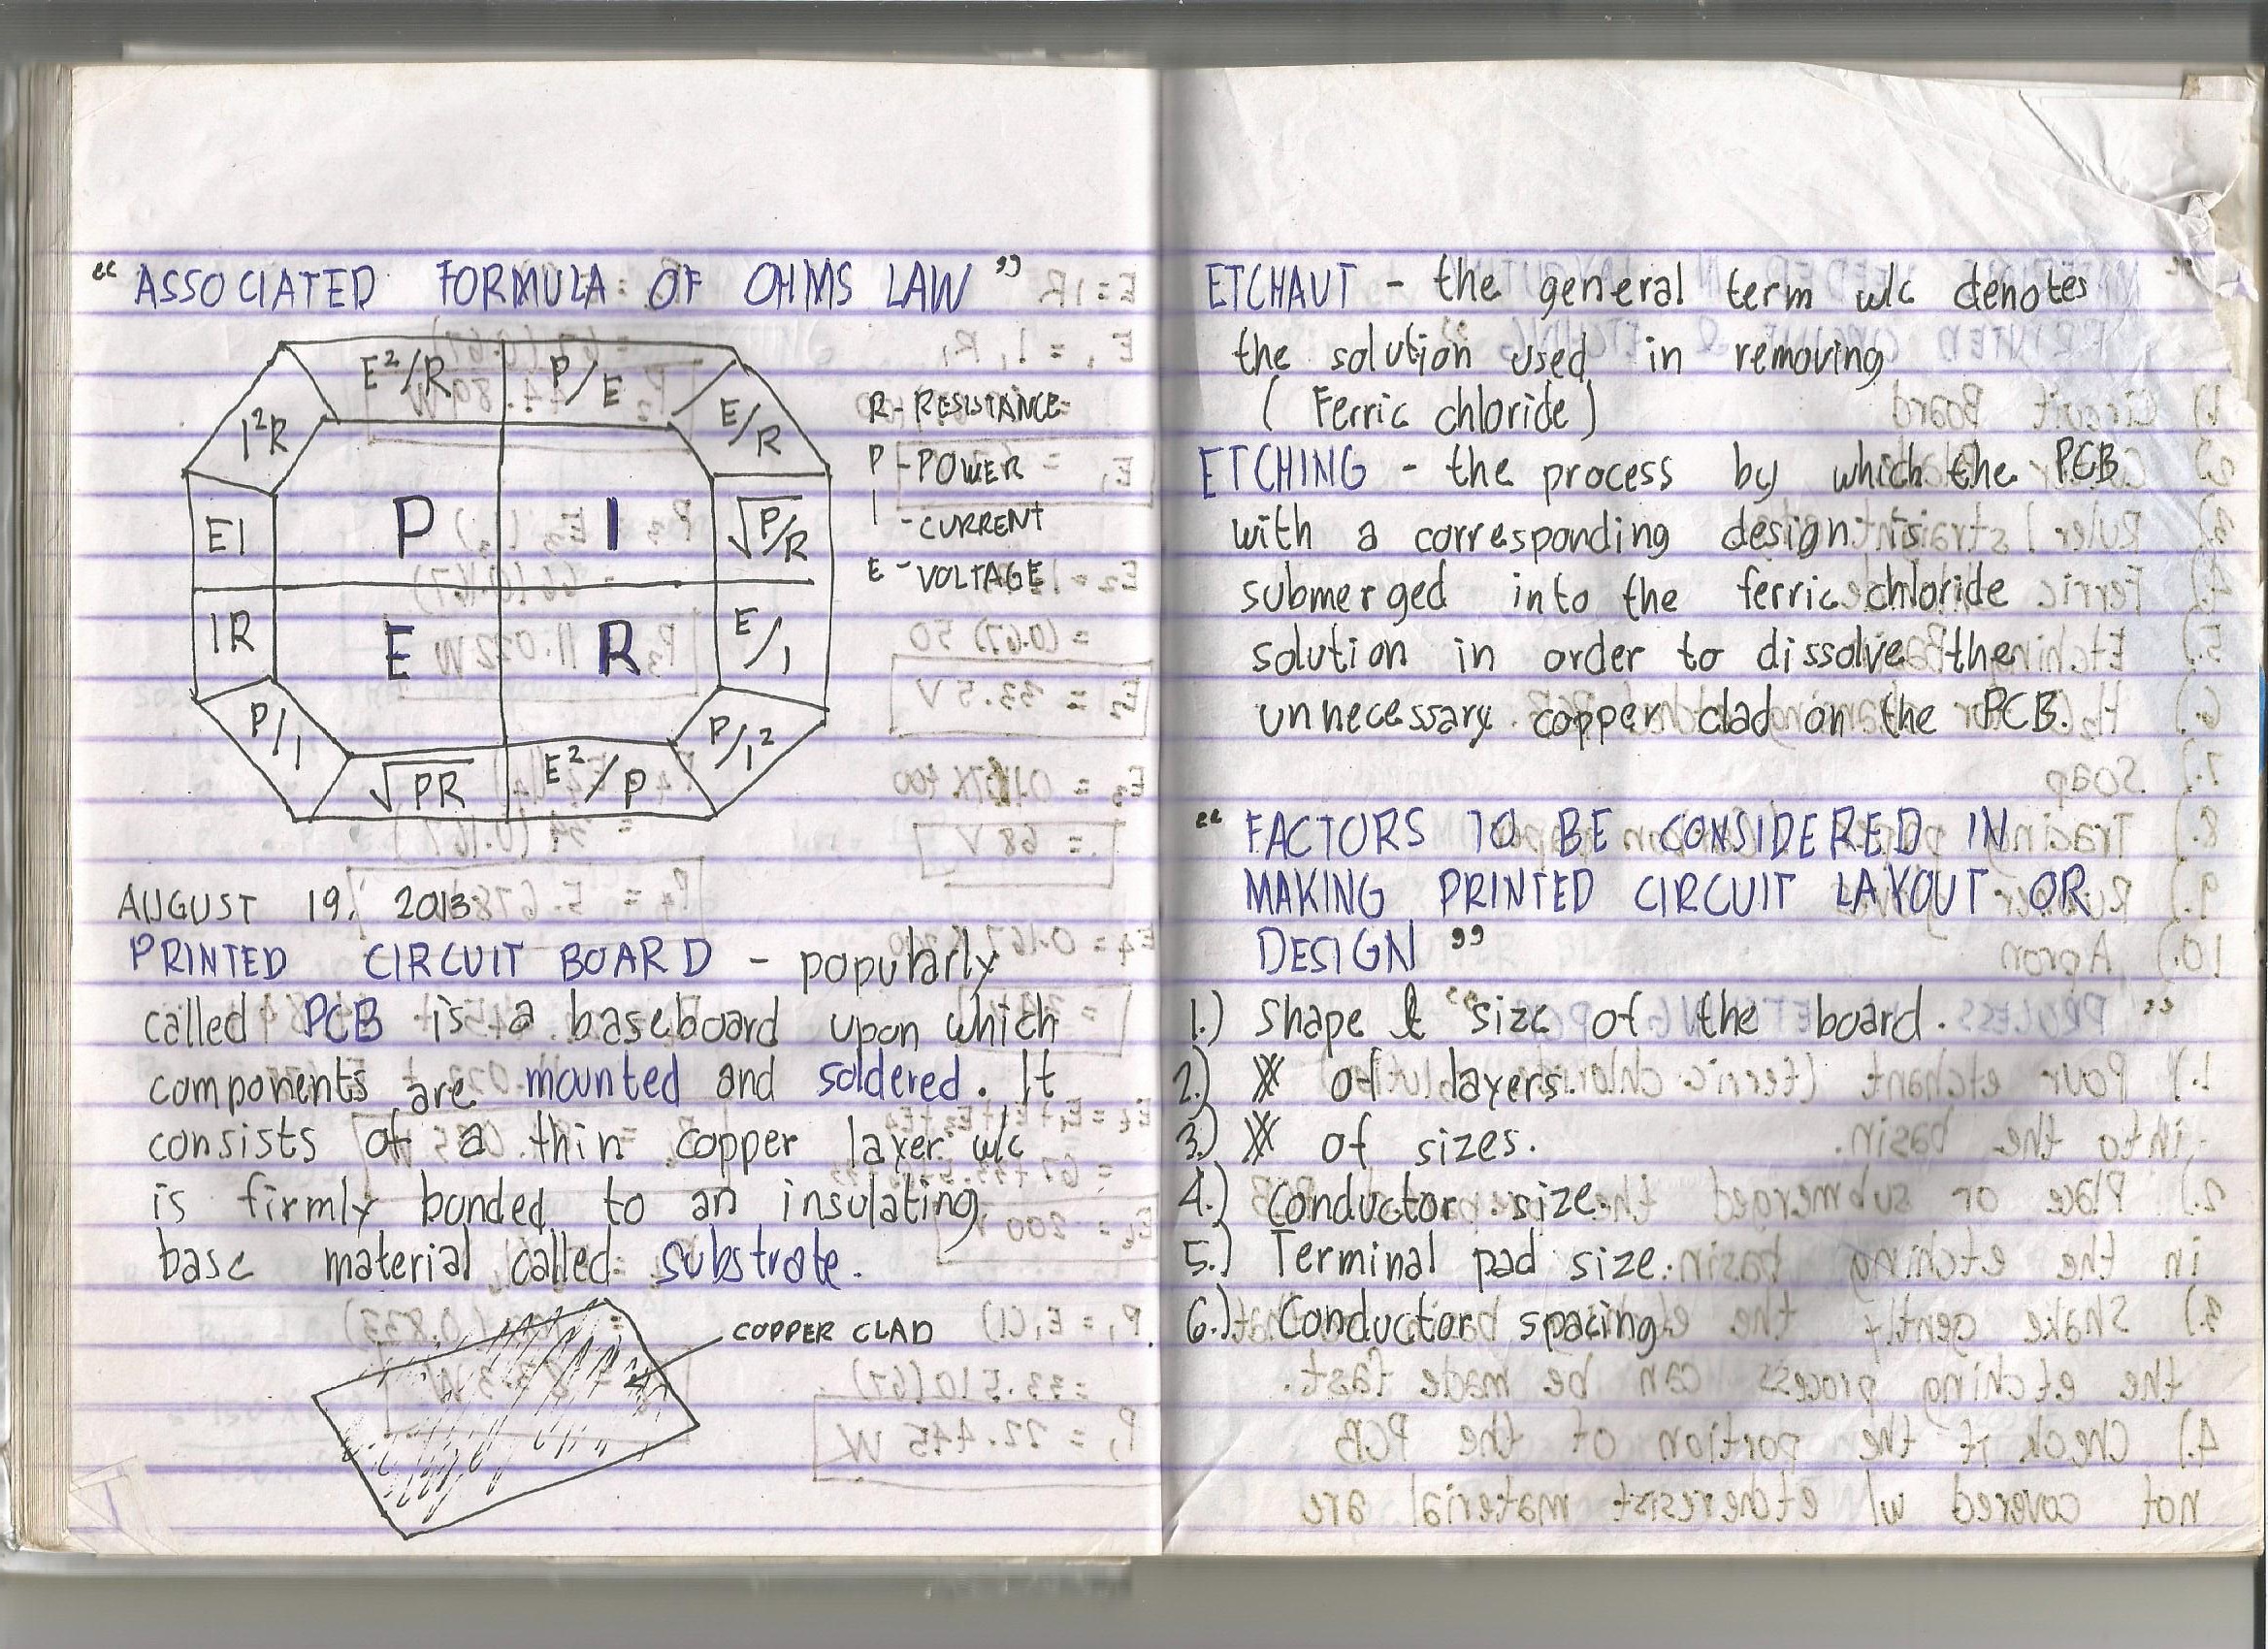 “ ASSOCIATED FORMULA OF OHMS LAW ”
E²/R P/E
I²R E/R
EI P I √P/R
IR E R E/I
P/I √PR E²/P P/I²
R - RESISTANCE
P - POWER
I - CURRENT
E - VOLTAGE
AUGUST 19, 2013
PRINTED CIRCUIT BOARD - popularly
called PCB is a baseboard upon which
components are mounted and soldered. It
consists of a thin copper layer w/c
is firmly bonded to an insulating
base material called substrate.
COPPER CLAD
ETCHAUT - the general term w/c denotes
the solution used in removing
( Ferric chloride )
ETCHING - the process by which the PCB
with a corresponding design is
submerged into the ferric chloride
solution in order to dissolve the
unnecessary copper clad on the PCB.
“ FACTORS TO BE CONSIDERED IN
MAKING PRINTED CIRCUIT LAYOUT OR
DESIGN ”
1.) Shape & size of the board.
2.) # of layers.
3.) # of sizes.
4.) Conductor size.
5.) Terminal pad size.
6.) Conductor spacing